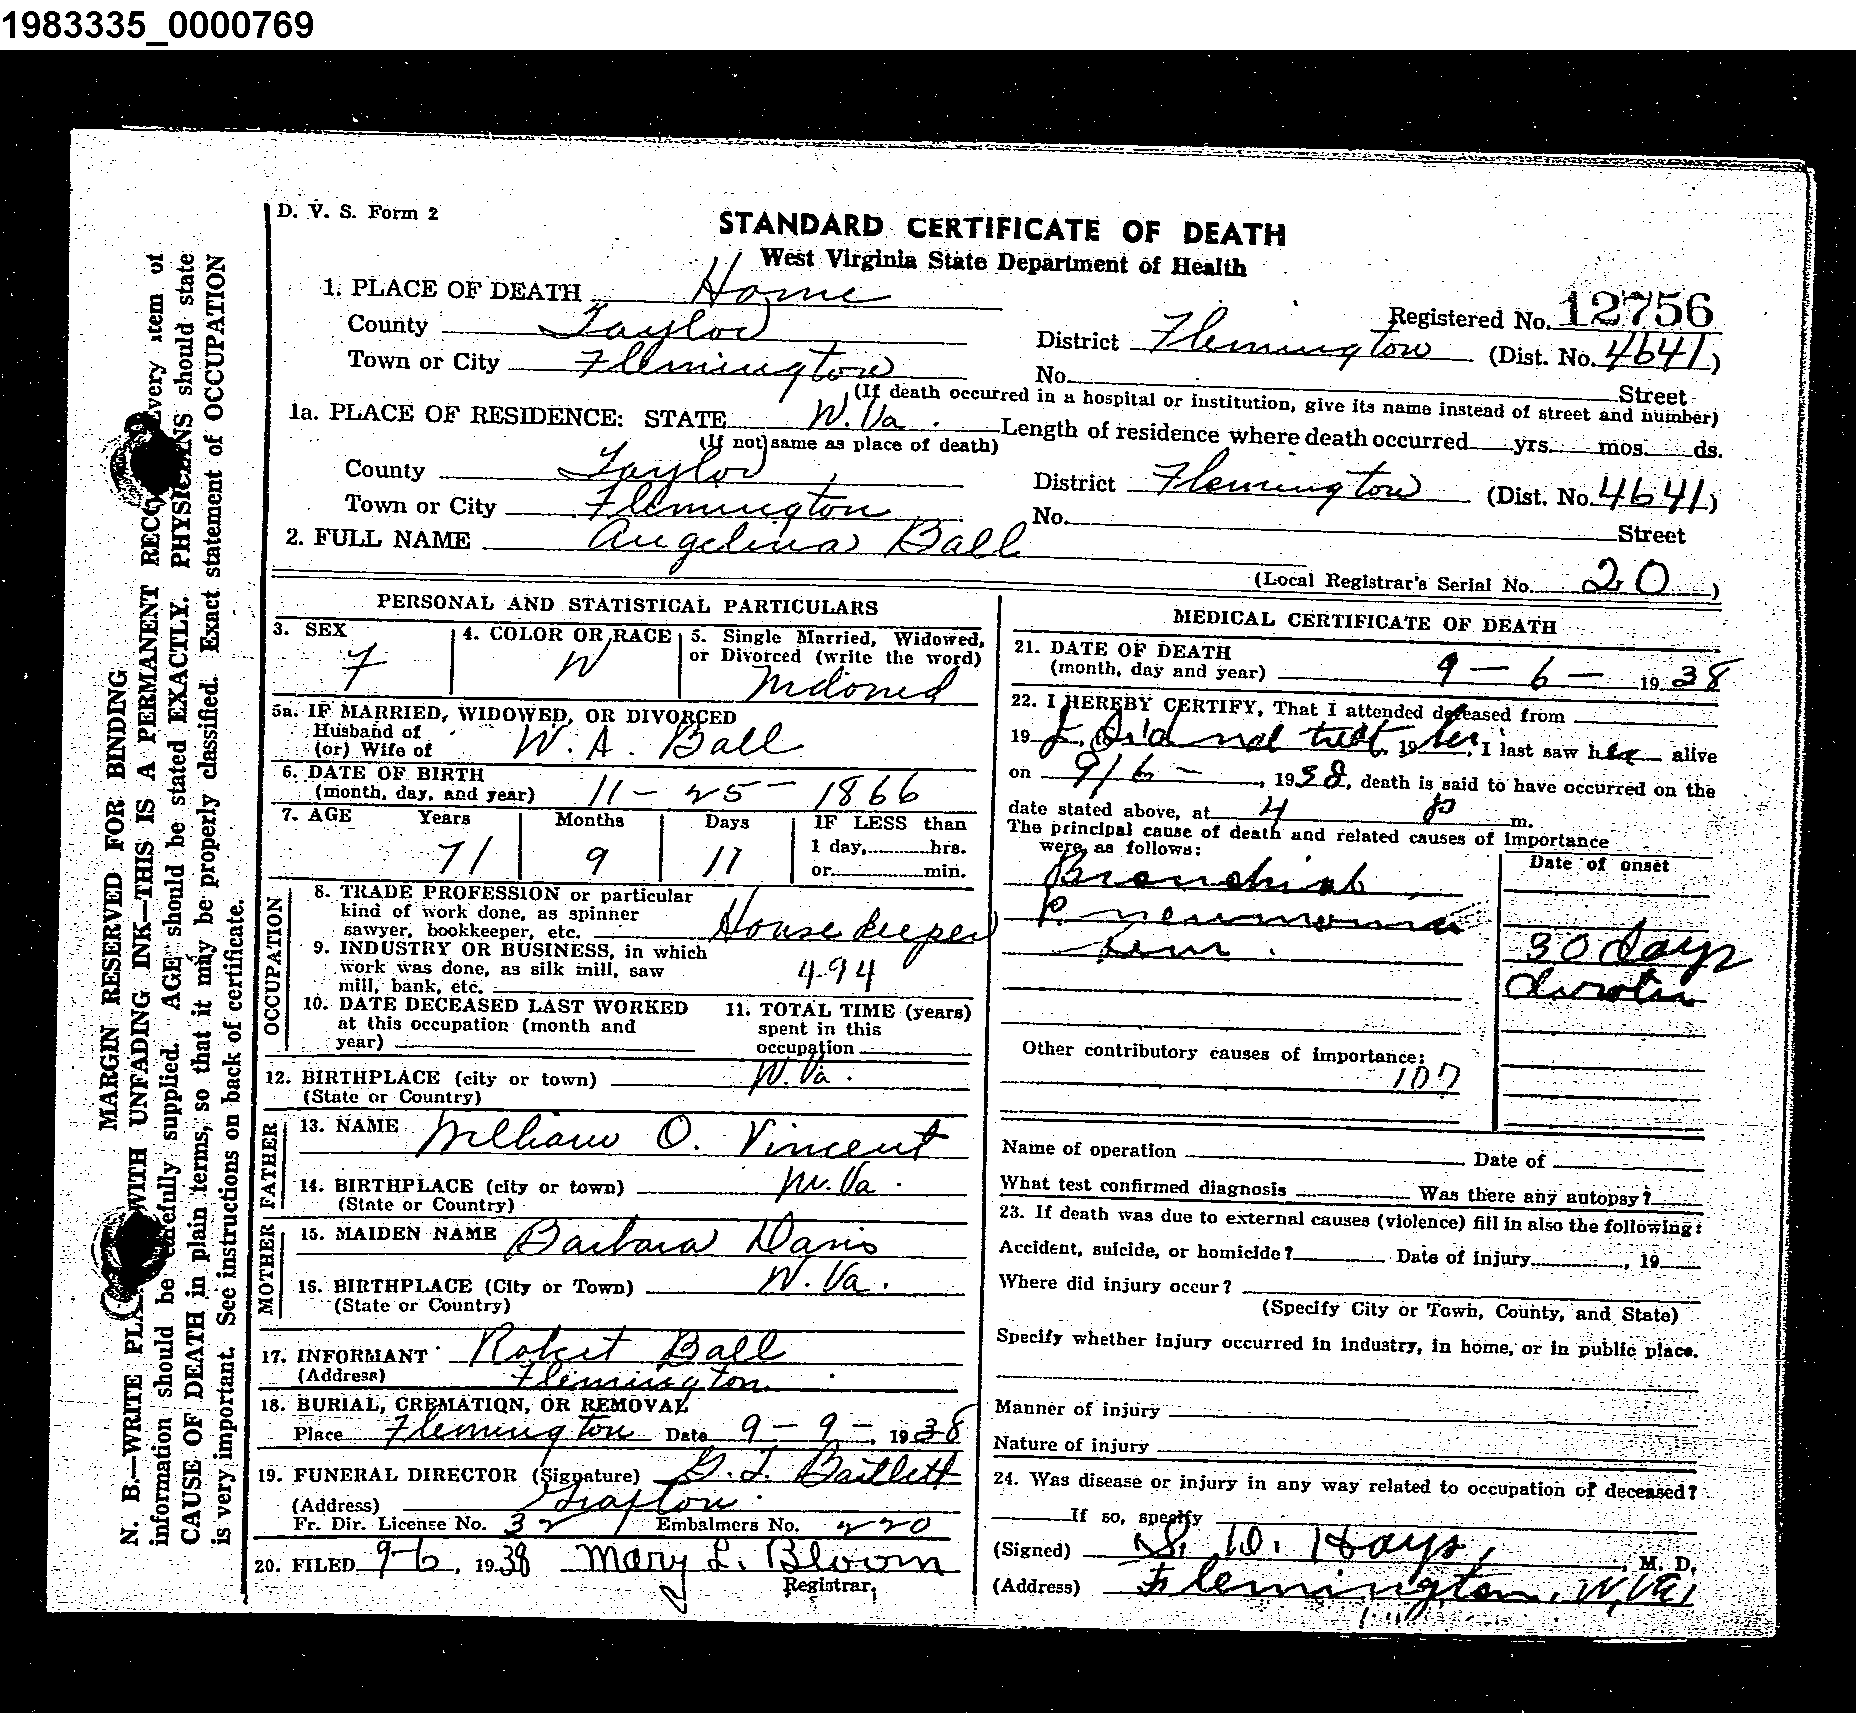 1983335_0000769
D. V. S. Form 2
STANDARD CERTIFICATE OF DEATH
West Virginia State Department of Health
1. PLACE OF DEATH Home
Registered No. 12756
County Taylor
District Flemington (Dist. No. 4641)
Town or City Flemington
No. Street
(If death occurred in a hospital or institution, give its name instead of street and number)
1a. PLACE OF RESIDENCE: STATE W. Va.
Length of residence where death occurred yrs. mos. ds.
(If not same as place of death)
County Taylor
District Flemington (Dist. No. 4641)
Town or City Flemington
No. Street
2. FULL NAME Angelina Ball
(Local Registrar's Serial No. 20)
PERSONAL AND STATISTICAL PARTICULARS
3. SEX
F
4. COLOR OR RACE
W
5. Single Married, Widowed,
or Divorced (write the word)
Widowed
5a. IF MARRIED, WIDOWED, OR DIVORCED
Husband of
(or) Wife of W. A. Ball
6. DATE OF BIRTH
(month, day, and year) 11-25-1866
7. AGE Years Months Days
71 9 11
IF LESS than
1 day, hrs.
or min.
OCCUPATION
8. TRADE PROFESSION or particular
kind of work done, as spinner
sawyer, bookkeeper, etc. House keeper
9. INDUSTRY OR BUSINESS, in which
work was done, as silk mill, saw
mill, bank, etc. 494
10. DATE DECEASED LAST WORKED
at this occupation (month and
year)
11. TOTAL TIME (years)
spent in this
occupation
12. BIRTHPLACE (city or town) W. Va.
(State or Country)
FATHER
13. NAME William O. Vincent
14. BIRTHPLACE (city or town) W. Va.
(State or Country)
MOTHER
15. MAIDEN NAME Barbara Davis
16. BIRTHPLACE (City or Town) W. Va.
(State or Country)
17. INFORMANT Robert Ball
(Address) Flemington
18. BURIAL, CREMATION, OR REMOVAL
Place Flemington Date 9-9-, 1938
19. FUNERAL DIRECTOR (Signature) G. T. Bartlett
(Address) Grafton
Fr. Dir. License No. 32 Embalmers No. 220
20. FILED 9-6, 1938 Mary L. Bloom
Registrar,
MEDICAL CERTIFICATE OF DEATH
21. DATE OF DEATH
(month, day and year) 9-6-1938
22. I HEREBY CERTIFY, That I attended deceased from
19 I did not treat, 19 her. I last saw her alive
on 9/6-, 1938, death is said to have occurred on the
date stated above, at 4 p m.
The principal cause of death and related causes of importance
were as follows:
Date of onset
Bronchial
Pneumonia
30 days
duration
Other contributory causes of importance:
107
Name of operation Date of
What test confirmed diagnosis Was there any autopsy?
23. If death was due to external causes (violence) fill in also the following:
Accident, suicide, or homicide? Date of injury, 19
Where did injury occur?
(Specify City or Town, County, and State)
Specify whether injury occurred in industry, in home, or in public place.
Manner of injury
Nature of injury
24. Was disease or injury in any way related to occupation of deceased?
If so, specify
(Signed) S. D. Hays, M. D.
(Address) Flemington, W. Va.
MARGIN RESERVED FOR BINDING
N. B.—WRITE WITH UNFADING INK—THIS IS A PERMANENT Every item of
information should be carefully supplied. AGE should be stated EXACTLY. PHYSICIANS should state
CAUSE OF DEATH in plain terms, so that it may be properly classified. Exact statement of OCCUPATION
is very important. See instructions on back of certificate.